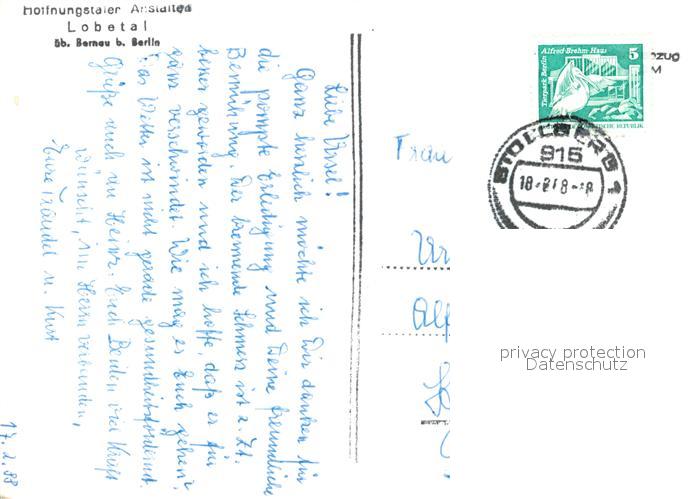 Hoffnungstaler Anstalten
Lobetal
üb. Bernau b. Berlin
Liebe Ursel!
Ganz herzlich möchte ich Dir danken für
die prompte Erledigung und Deine freundliche
Bemühung. Der brennende Schmerz ist z. Zt.
besser geworden und ich hoffe, daß es für
ganz verschwindet. Wie mag es Euch gehen?
Das Wetter ist nicht gerade gesundheitsfördernd.
Grüße auch an Heinz. Euch Beiden viel Kraft
wünscht, im Herrn verbunden,
Eure Traudel u. Kurt
17.2.88
Alfred-Brehm-Haus
5
Tierpark Berlin
DEUTSCHE DEMOKRATISCHE REPUBLIK
STOLLBERG 1
915
Frau
Ur
privacy protection
Datenschutz